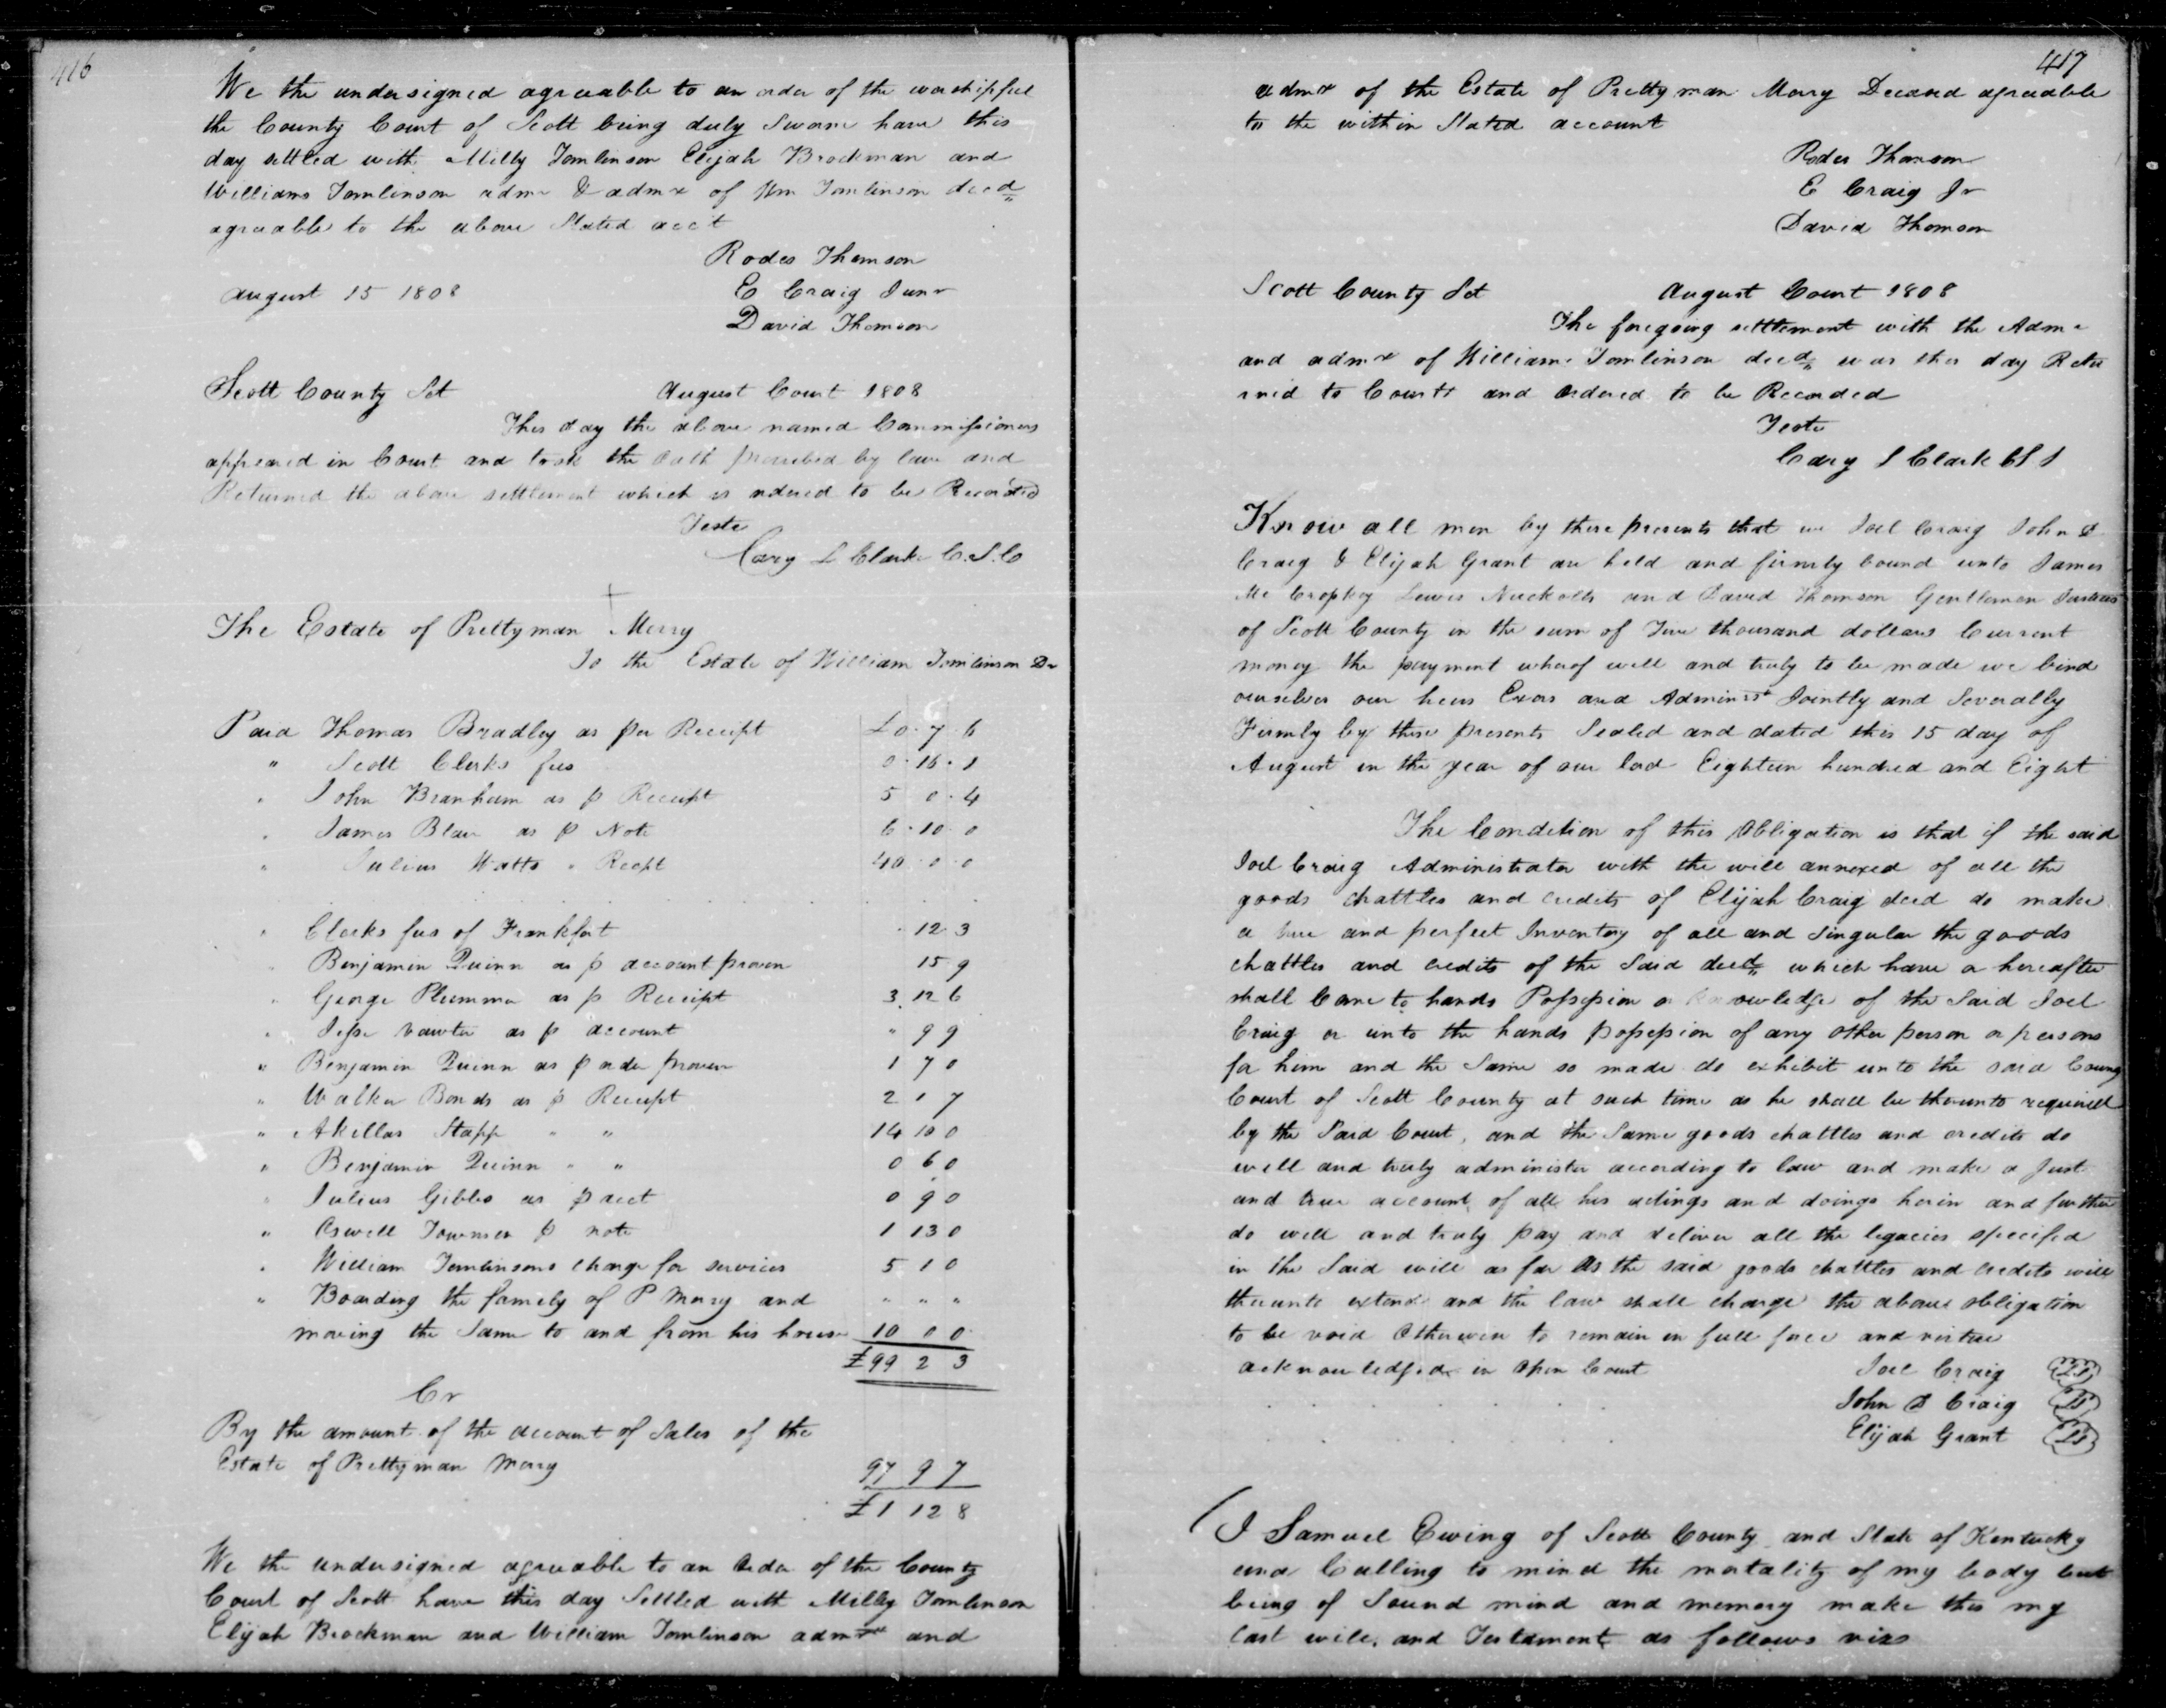 416
We the undersigned agreeable to an order of the worshipful
the County Court of Scott being duly Sworn have this
day settled with Milly Tomlinson Elijah Brockman and
Williams Tomlinson admr & admx of Wm Tomlinson decd
agreeable to the above Stated acct
Rodes Thomson
August 15 1808 E Craig Junr
David Thomson
Scott County Sct August Court 1808
This day the above named Commissioners
appeared in Court and took the Oath prescribed by law and
Returned the above settlement which is ordered to be Recorded
Teste
Cary L Clarke C.S.C
The Estate of Prettyman Merry
To the Estate of William Tomlinson Dr
Paid Thomas Bradley as per Receipt £0.7.6
" Scott Clerks fees 0.16.1
" John Branham as p Receipt 5 0.4
" James Blair as p Note 6.10.0
" Julius Watts " Recpt 40.0.0
" Clerks fees of Frankfort 12 3
" Benjamin Quinn as p account proven 15 9
" George Plummer as p Receipt 3.12 6
" Jesse Vawter as p account " 9 9
" Benjamin Quinn as p order proven 1 7 0
" Walker Bonds as p Receipt 2 1 7
" Akillas Stapp " " 14 10 0
" Benjamin Quinn " " 0 6 0
" Julius Gibbs as p acct 0 9 0
" Oswell Townsen p note 1 13 0
" William Tomlinsons charge for services 5 1 0
" Boarding the family of P Merry and " " "
moving the Same to and from his house 10 0 0
£99 2 3
Cr
By the amount of the account of Sales of the
Estate of Prettyman Merry 97 9 7
£1 12 8
We the undersigned agreeable to an Order of the County
Court of Scott have this day Settled with Milly Tomlinson
Elijah Brockman and William Tomlinson admrs and
417
admx of the Estate of Prettyman Merry Deceased agreeable
to the within Stated account
Rodes Thomson
E Craig Jr
David Thomson
Scott County Sct August Court 1808
The foregoing settlement with the Admr
and admx of William Tomlinson decd was this day Retu
rned to Court and ordered to be Recorded
Teste
Cary L Clark
Know all men by these presents that we Joel Craig John D
Craig & Elijah Grant are held and firmly bound unto James
Mc Croskey Lewis Nuckolls and David Thomson Gentlemen Justices
of Scott County in the sum of Five thousand dollars Current
money the payment wherof well and truly to be made we bind
ourselves our heirs Exors and Administ Jointly and Severally
Firmly by these presents Sealed and dated this 15 day of
August in the year of our lord Eighteen hundred and Eight
The Condition of this Obligation is that if the said
Joel Craig Administrator with the will annexed of all the
goods chattles and credits of Elijah Craig decd do make
a true and perfect Inventory of all and Singular the goods
chattles and credits of the Said decd which have or hereafter
shall Come to hands Possession or knowledge of the Said Joel
Craig or unto the hands possession of any other person or persons
for him and the Same so made do exhibit unto the said County
Court of Scott County at such time as he shall be thereunto required
by the Said Court, and the Same goods chattles and credits do
well and truly administer according to law and make a Just
and true account of all his actings and doings herein and further
do well and truly pay and deliver all the legacies specifed
in the Said will as far As the said goods chattles and credits will
thereunto extend and the law shall charge the above obligation
to be void Otherwise to remain in full force and virtue
acknowledged in Open Court Joel Craig (LS)
John D Craig (LS)
Elijah Grant (LS)
I Samuel Ewing of Scott County and State of Kentucky
and Calling to mind the mortality of my body but
being of Sound mind and memory make this my
last will, and Testament as follows viz